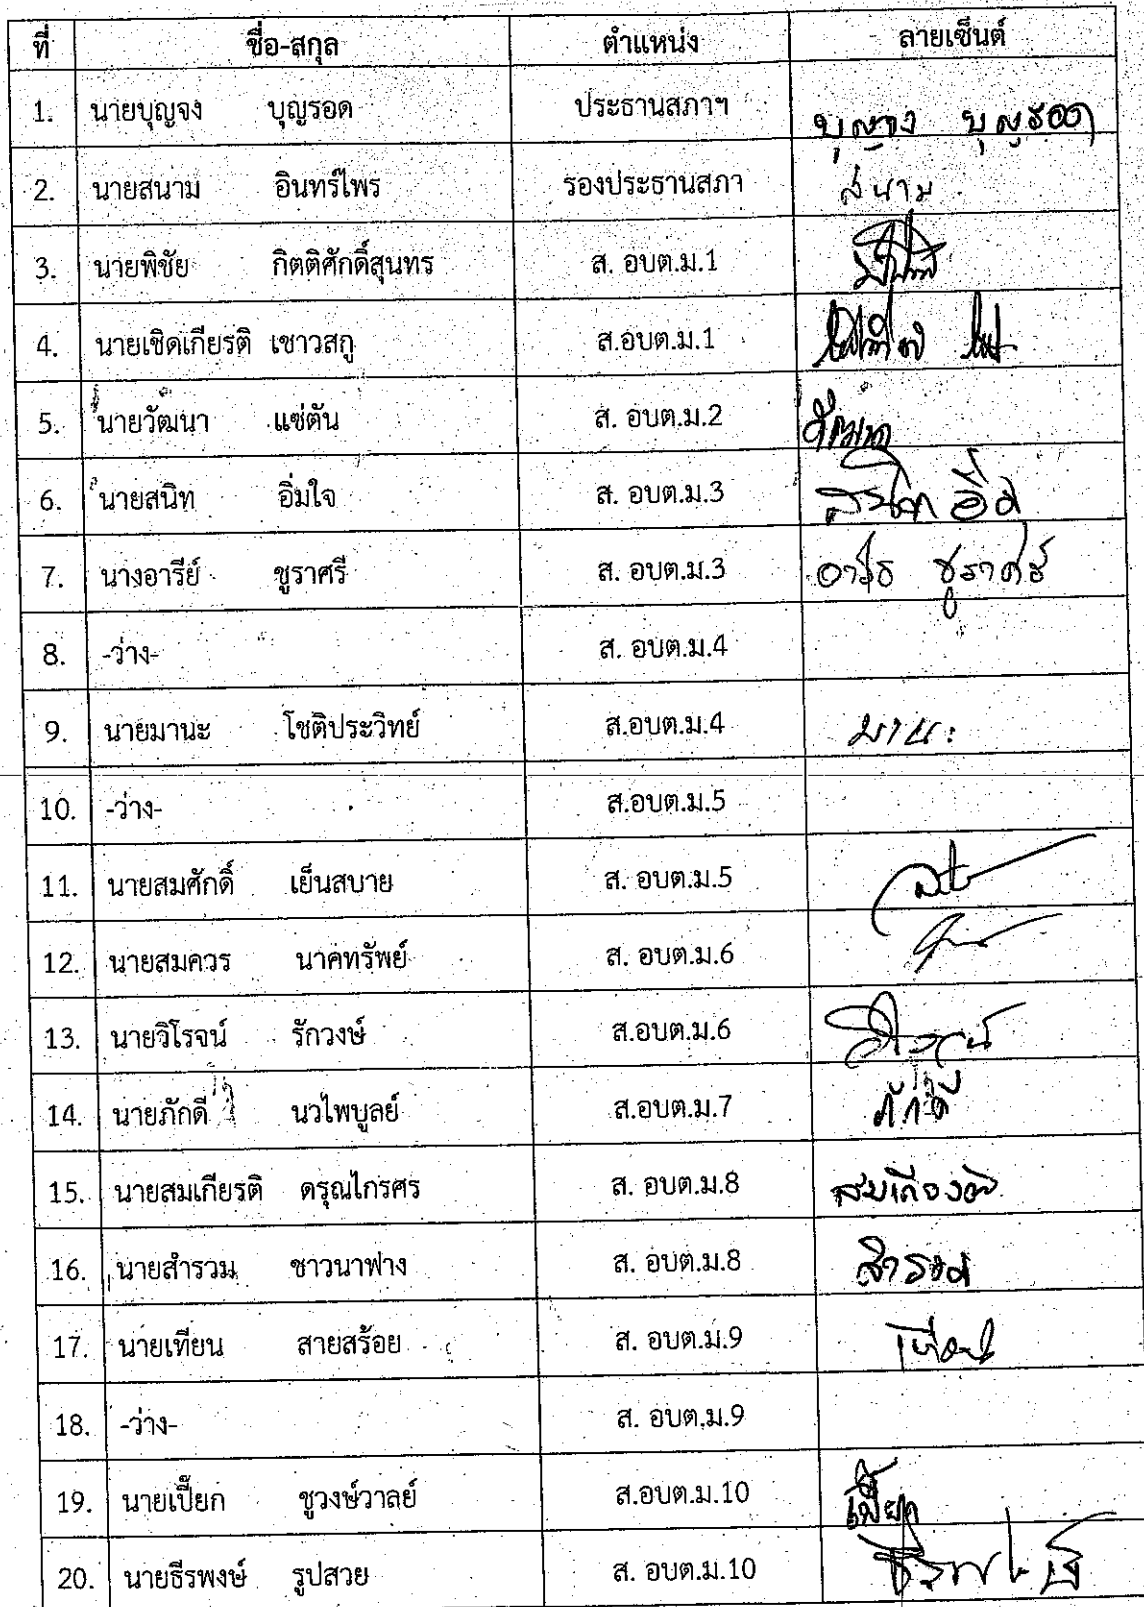 ที่ ชื่อ-สกุล ตำแหน่ง ลายเซ็นต์
1. นายบุญจง บุญรอด ประธานสภาฯ บุญจง บุญรอด
2. นายสนาม อินทร์ไพร รองประธานสภา สนาม
3. นายพิชัย กิตติศักดิ์สุนทร ส. อบต.ม.1
4. นายเชิดเกียรติ เชาวสกู ส.อบต.ม.1
5. นายวัฒนา แซ่ตัน ส. อบต.ม.2
6. นายสนิท อิ่มใจ ส. อบต.ม.3
7. นางอารีย์ ชูราศรี ส. อบต.ม.3 ชูราศรี
8. -ว่าง- ส. อบต.ม.4
9. นายมานะ โชติประวิทย์ ส.อบต.ม.4 มานะ
10. -ว่าง- ส.อบต.ม.5
11. นายสมศักดิ์ เย็นสบาย ส. อบต.ม.5
12. นายสมควร นาคทรัพย์ ส. อบต.ม.6
13. นายวิโรจน์ รักวงษ์ ส.อบต.ม.6 วิโรจน์
14. นายภักดี นวไพบูลย์ ส.อบต.ม.7 ภักดี
15. นายสมเกียรติ ดรุณไกรศร ส. อบต.ม.8
16. นายสำรวม ชาวนาฟาง ส. อบต.ม.8
17. นายเทียน สายสร้อย ส. อบต.ม.9
18. -ว่าง- ส. อบต.ม.9
19. นายเปี๊ยก ชูวงษ์วาลย์ ส.อบต.ม.10 เปี๊ยก
20. นายธีรพงษ์ รูปสวย ส. อบต.ม.10